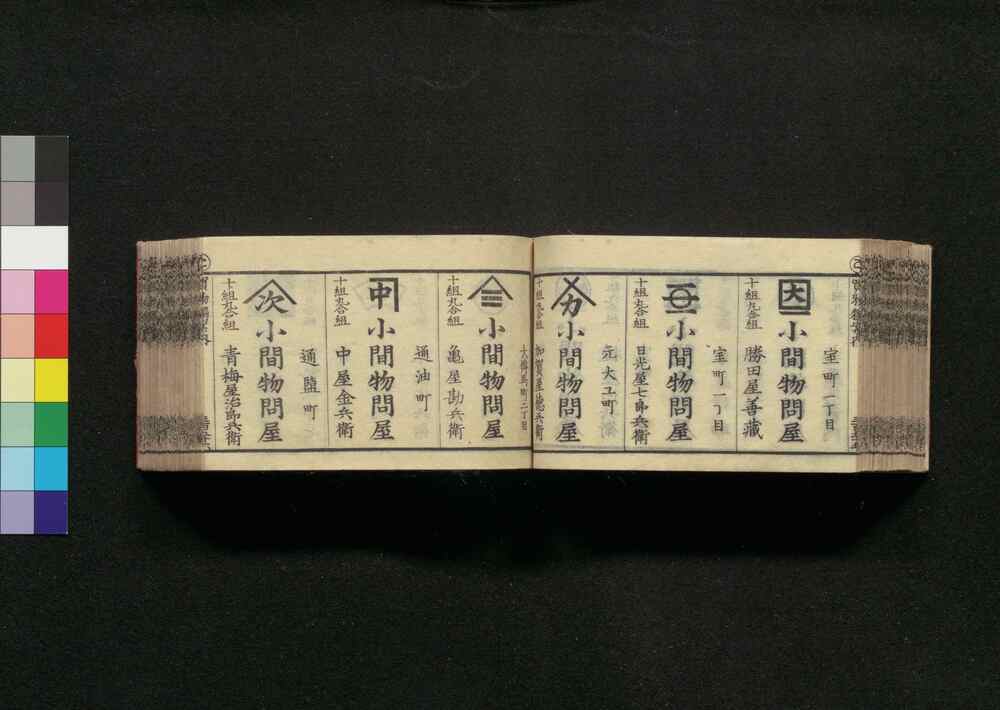 室町一丁目
小間物問屋
十組丸合組 勝田屋善藏
室町一丁目
小間物問屋
十組丸合組 日光屋七郎兵衛
元大工町
小間物問屋
十組丸合組
小間物問屋
十組丸合組 亀屋勘兵衛
通油町
中 小間物問屋
十組丸合組 中屋金兵衛
通塩町
次 小間物問屋
十組丸合組 青梅屋治郎兵衛